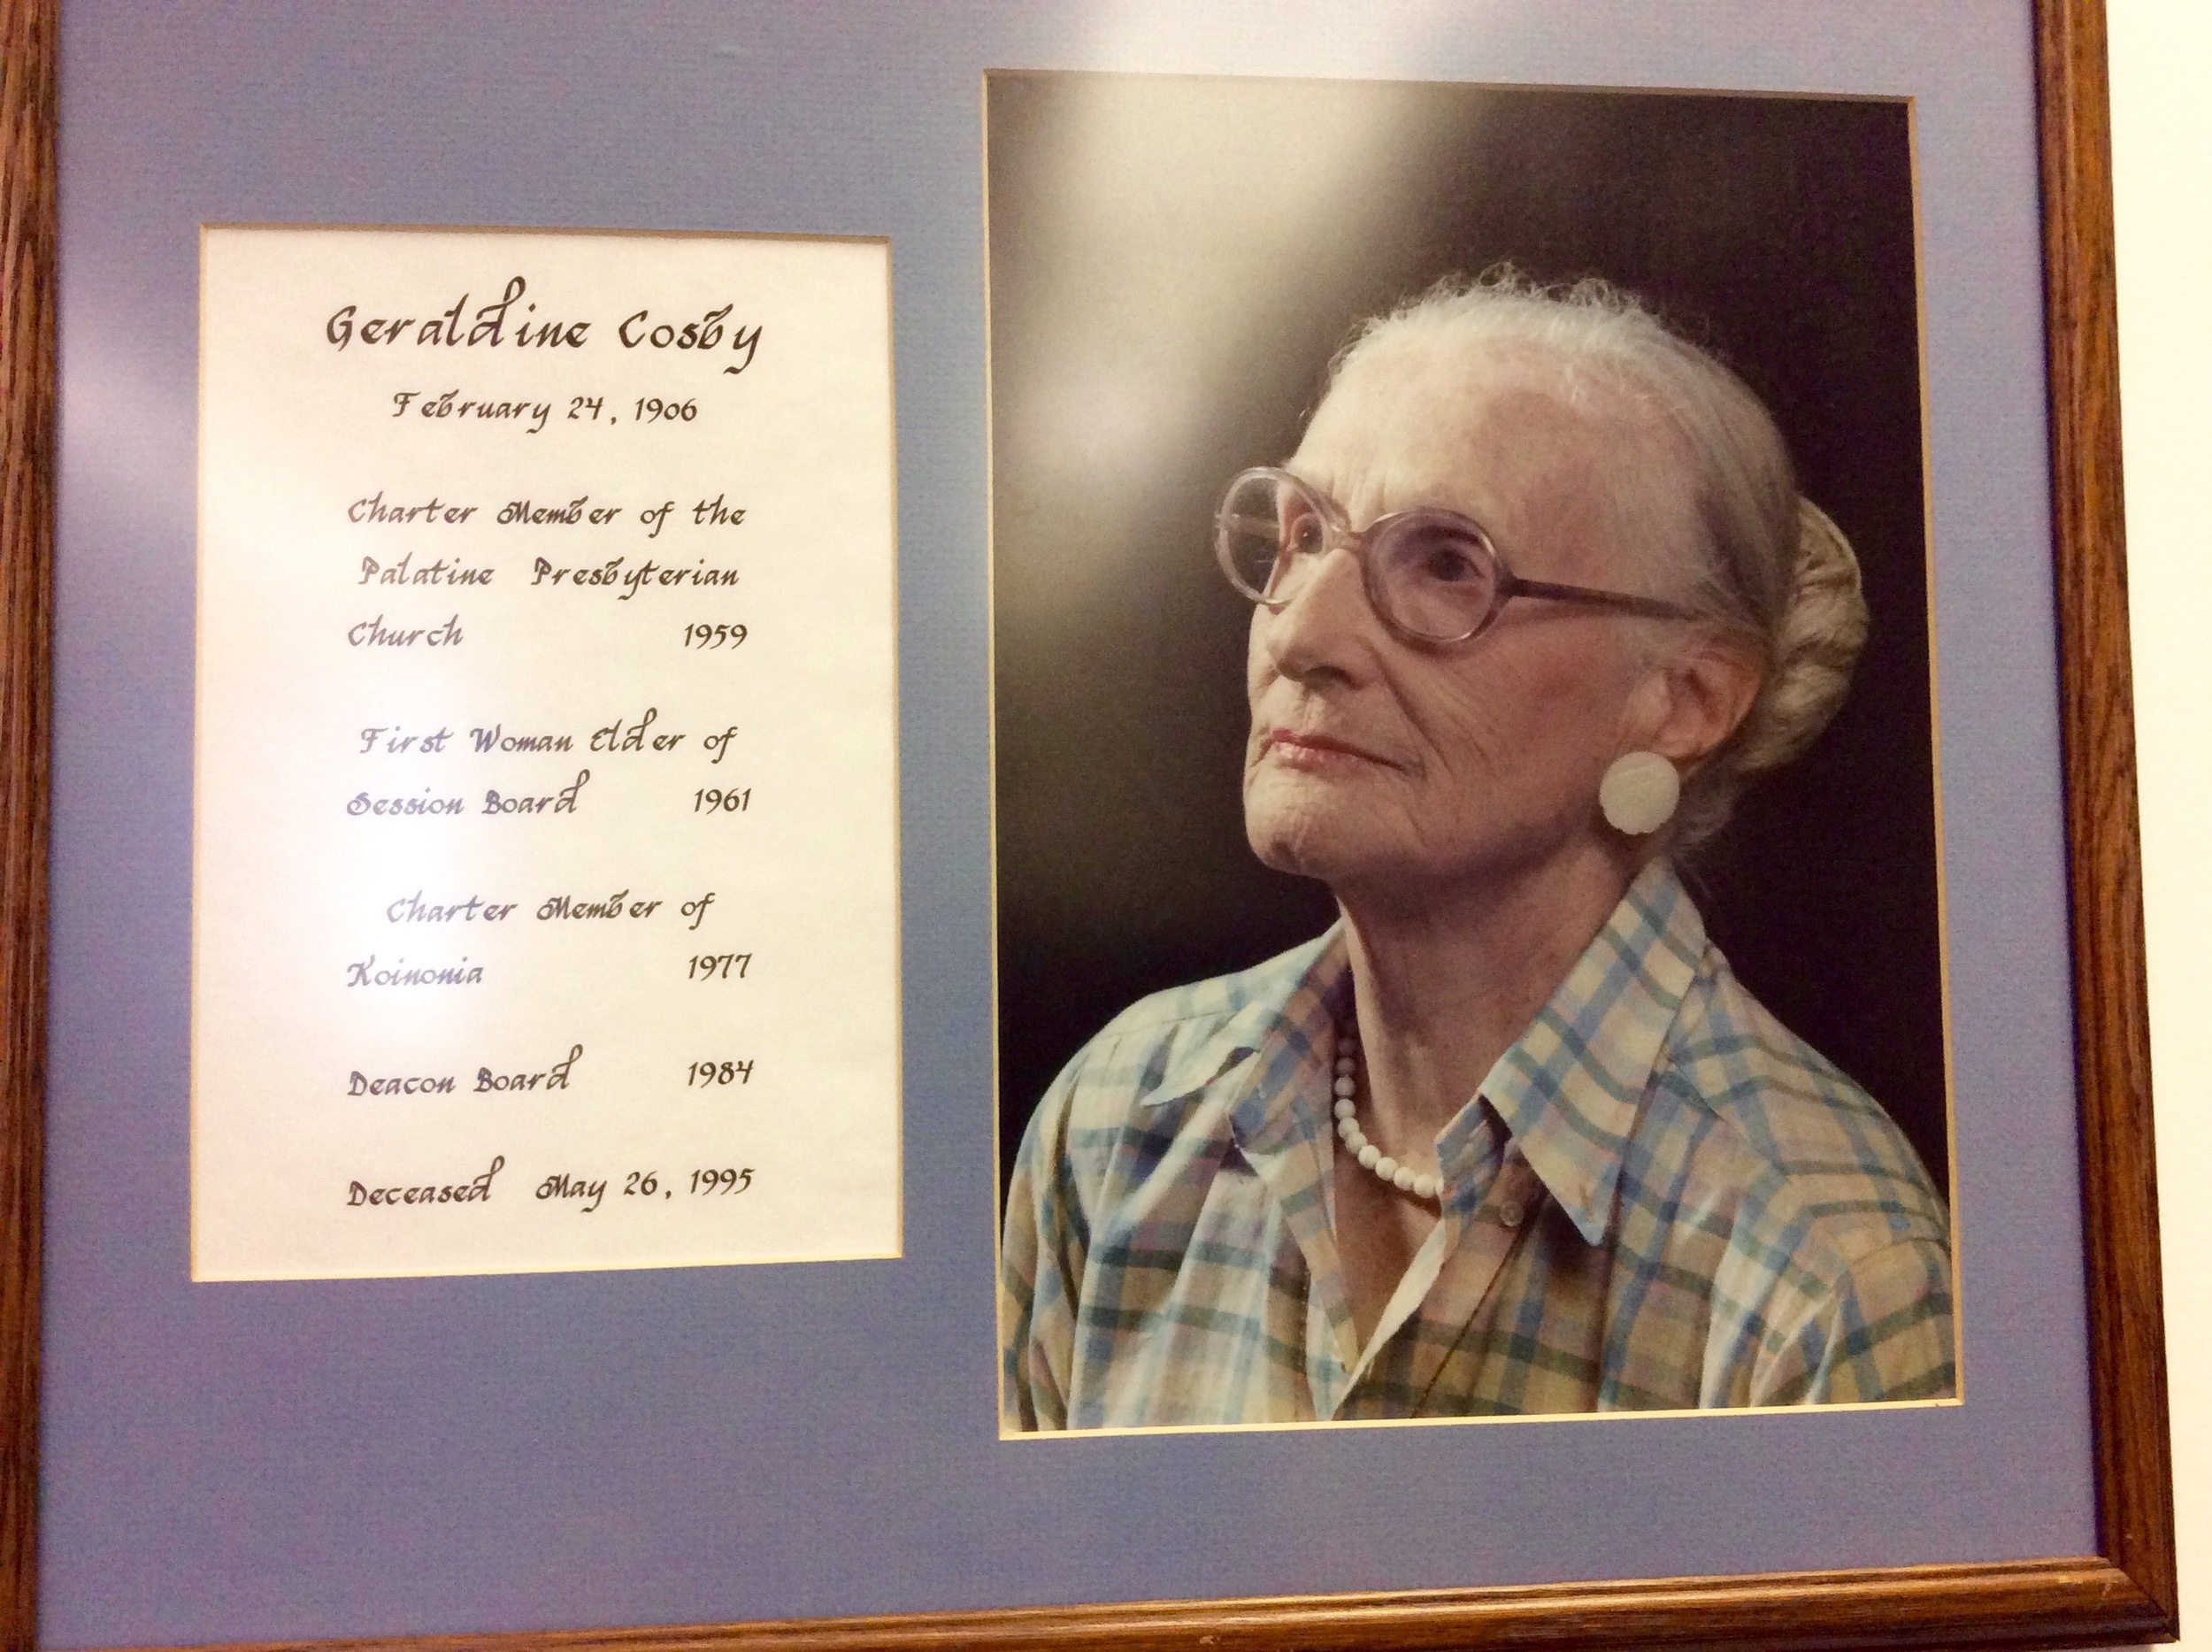 Geraldine Cosby
February 24, 1906
Charter Member of the
Palatine Presbyterian
Church 1959
First Woman Elder of
Session Board 1961
Charter Member of
Koinonia 1977
Deacon Board 1984
Deceased May 26, 1995